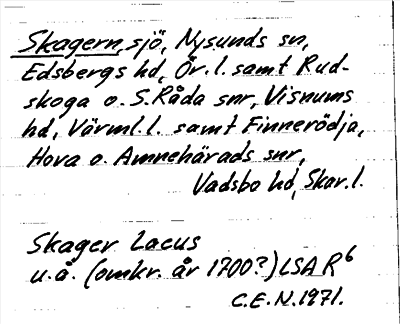 Skagern, sjö, Nysunds sn,
Edsbergs hd, Ör. l. samt Rud-
skoga o. S. Råda snr, Visnums
hd, Värml. l. samt Finnerödja,
Hova o. Amnehärads snr,
Vadsbo hd, Skar. l.
Skager Lacus
u.å. (omkr. år 1700?) LSA R6
C.E.N. 1971.